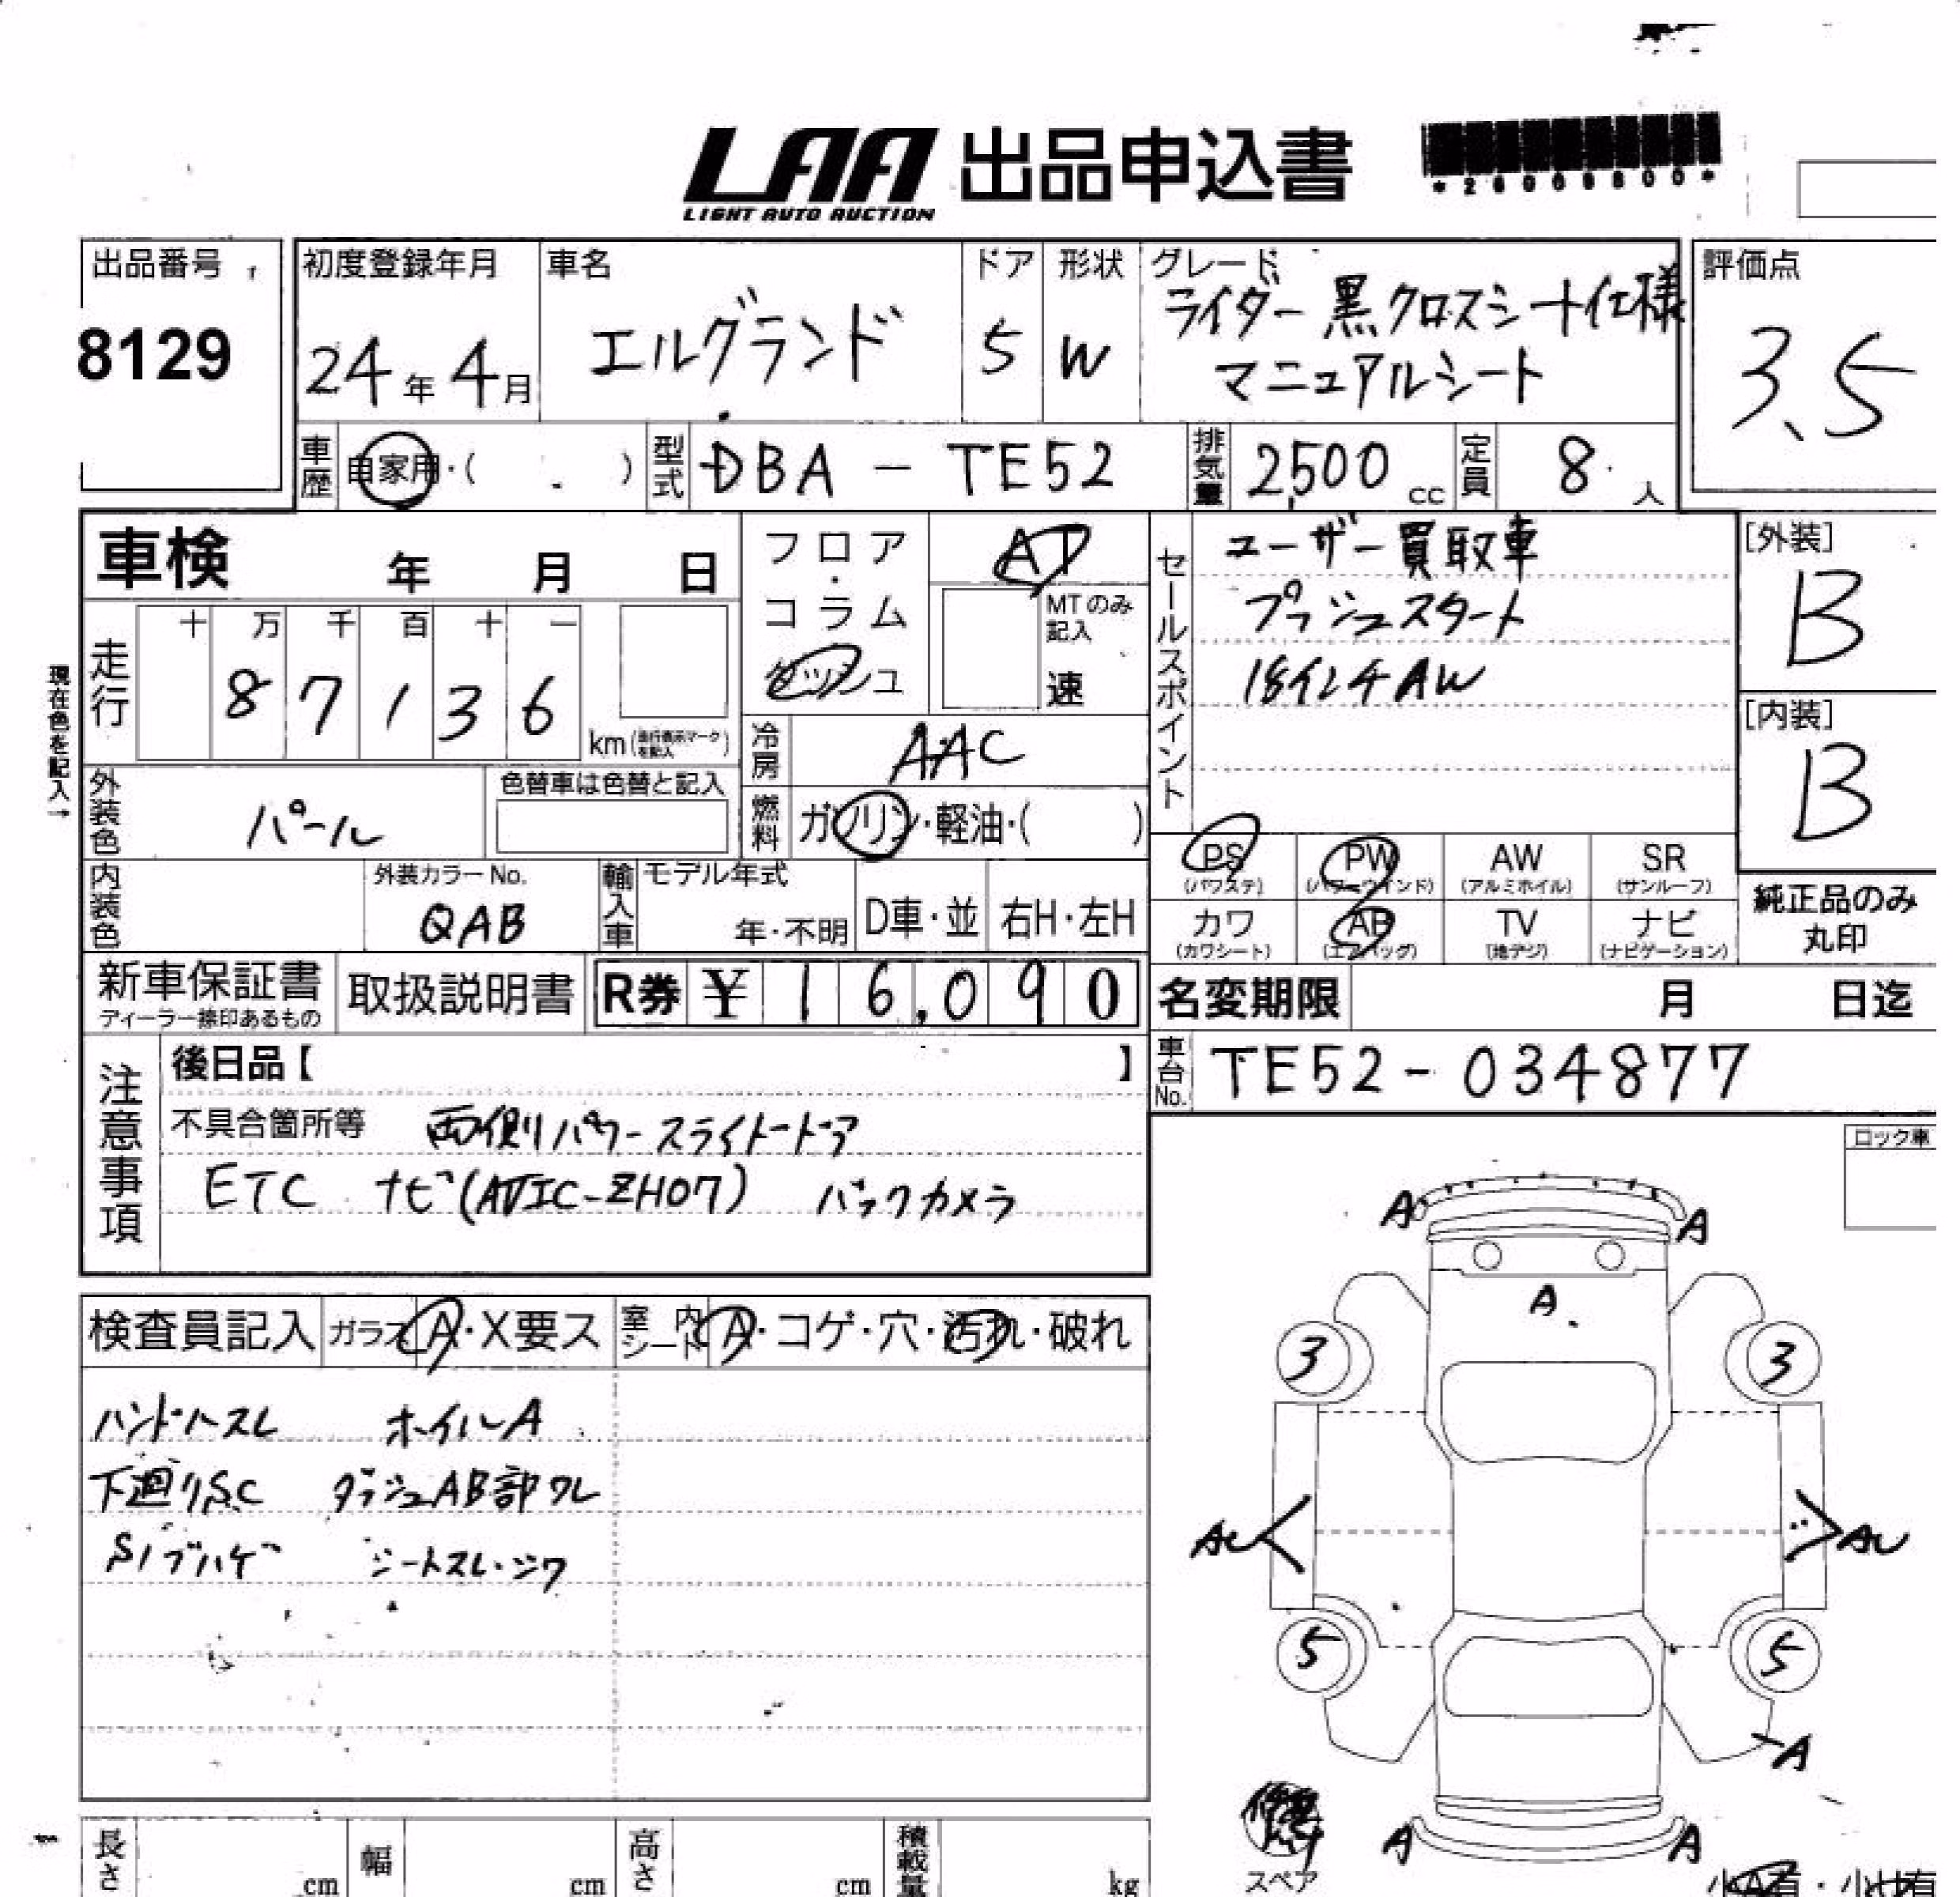 LAA 出品申込書
LIGHT AUTO AUCTION
出品番号
8129
初度登録年月
24年 4月
車名
エルグランド
ドア
5
形状
W
グレード
ライダー 黒クロスシート仕様
マニュアルシート
評価点
3.5
車歴
自家用・( )
型式
DBA - TE52
排気量
2,500 cc
定員
8 人
車検 年 月 日
フロア・コラム
ダッシュ
AT
MTのみ記入
速
セールスポイント
ユーザー買取車
プッシュスタート
18インチAW
[外装]
B
[内装]
B
現在色を記入→
走行
十 万 千 百 十 一
8 7 1 3 6
km
冷房
AAC
燃料
ガソリン・軽油・( )
外装色
パール
色替車は色替と記入
内装色
外装カラーNo.
QAB
輸入車
モデル年式
年・不明
D車・並
右H・左H
PS
(パワステ)
PW
(パワーウインド)
AW
(アルミホイル)
SR
(サンルーフ)
カワ
(カワシート)
AB
(エアバッグ)
TV
(地デジ)
ナビ
(ナビゲーション)
純正品のみ
丸印
新車保証書
ディーラー捺印あるもの
取扱説明書
R券 ¥ 16,090
名変期限 月 日迄
車台No.
TE52-034877
注意事項
後日品【 】
不具合箇所等 両側パワースライドドア
ETC ナビ(AVIC-ZH07) バックカメラ
ロック車
検査員記入
ガラス A・X要ス
室内シート A・コゲ・穴・汚れ・破れ
ハンドルスレ ホイルA
下廻りSC ダッシュAB部ワレ
シートスレ・シワ
A A
A
3 3
5 5
A
A A
スペア
長さ cm
幅 cm
高さ cm
積載量 kg